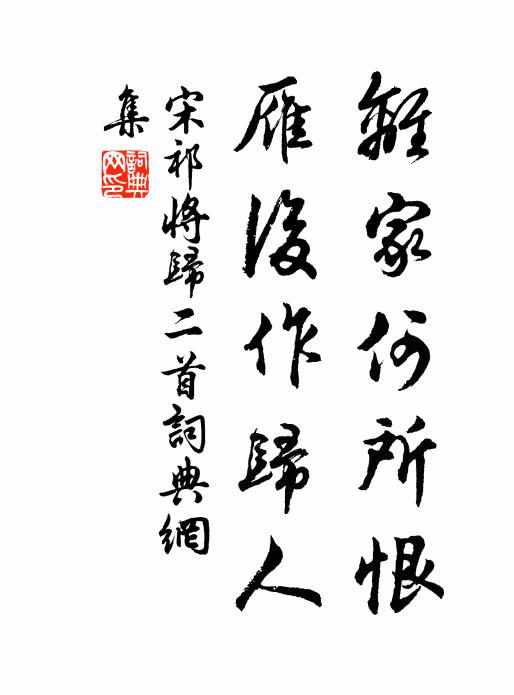 離家何所恨
雁後作歸人
宋祁將歸二首詞典網
集
詞典
网印